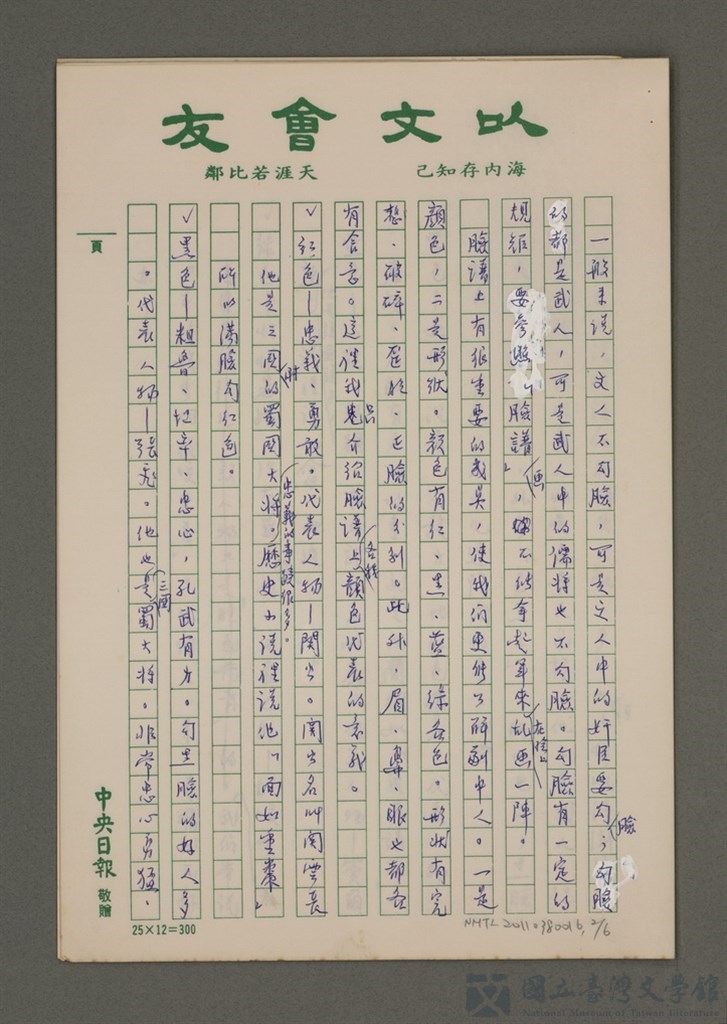 以文會友
海內存知己
天涯若比鄰
一般來說，文人不勾臉，可是文人中的奸臣要勾臉；勾臉
的都是武人，可是武人中的儒將也不勾臉。勾臉有一定的
規矩，要參照「臉譜」畫，不能拿起筆來在臉上亂畫一陣。
臉譜上有很重要的成員，使我們更能了解劇中人。一是
顏色，二是形狀。顏色有紅、黑、藍、綠各色。形狀有完
整、破碎、歪臉、正臉的分別。此外，眉、鼻、眼也都各
有含意。這裡我只介紹臉譜上各種顏色代表的意義。
✓紅色—忠義、勇敢。代表人物—關公。關公名叫關雲長
他是三國時的蜀國大將。忠義的事蹟很多。歷史小說裡說他「面如重棗」
所以滿臉勾紅色。
✓黑色—粗魯、坦率、忠心，孔武有力。勾黑臉的好人多
。代表人物—張飛。他也是三國蜀大將。非常忠心勇猛、
頁
中央日報 敬贈
25×12=300
NMTL 20110380016, 2/6
國立臺灣文學館
National Museum of Taiwan Literature